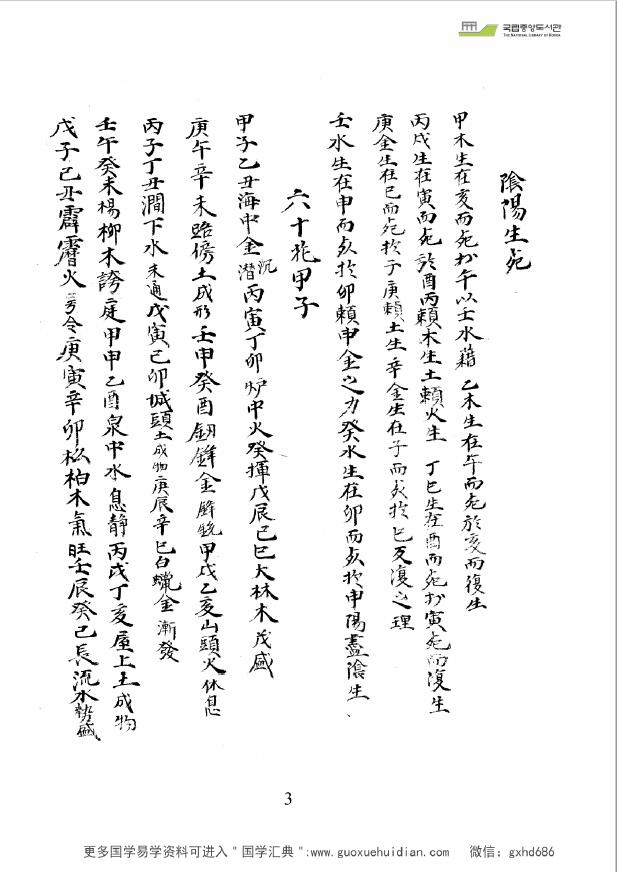 국립중앙도서관
THE NATIONAL LIBRARY OF KOREA
陰陽生死
甲木生在亥而死於午以壬水藉 乙木生在午而死於亥而復生
丙戊生在寅而死於酉丙賴木生土賴火生 丁巳生在酉而死於寅死而復生
庚金生在巳而死於子庚賴土生辛金生在子而死於巳反復之理
壬水生在申而死於卯賴申金之力癸水生在卯而死於申陽盡陰生
六十花甲子
甲子乙丑海中金沉潜丙寅丁卯炉中火發揮戊辰己巳大林木茂盛
庚午辛未路傍土成形壬申癸酉釰鋒金鋒銳甲戌乙亥山頭火休息
丙子丁丑澗下水未通戊寅己卯城頭土成物庚辰辛巳白蠟金漸發
壬午癸未楊柳木誇庭甲申乙酉泉中水息靜丙戌丁亥屋上土成物
戊子己丑霹靂火号令庚寅辛卯松柏木氣旺壬辰癸巳長流水勢盛
3
更多国学易学资料可进入＂国学汇典＂:www.guoxuehuidian.com 微信：gxhd686